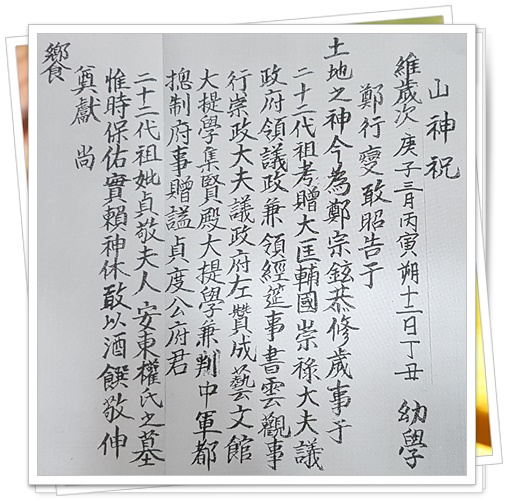 山神祝
維歲次 庚子三月丙寅朔十二日丁丑 幼學
鄭行燮敢昭告于
土地之神今為鄭宗鉉恭修歲事于
二十二代祖考贈大匡輔國崇祿大夫議
政府領議政兼領經筵事書雲觀事
行崇政大夫議政府左贊成藝文館
大提學集賢殿大提學兼判中軍都
摠制府事贈諡貞度公府君
二十二代祖妣貞敬夫人 安東權氏之墓
惟時保佑實賴神休敢以酒饌敬伸
奠獻 尚
饗